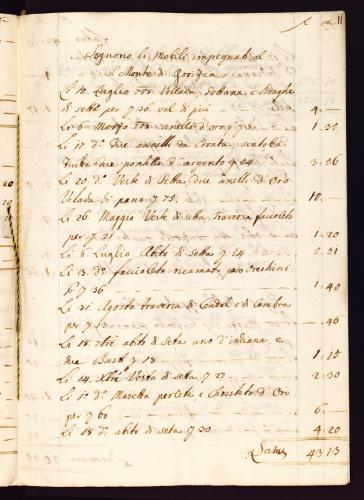 11
Seguono li Mobili impegnati al
Monte di Gorizia
Li 10. Luglio 788 Vellada, Sottana, e Braghe
di setta per f 36. val di più 4. —
Li 6 Marzo anello d'oro f 1. 35.
Li 17. d.o due annelli da Croata
due d'argento f 54. 3. 56
Li 20 d.o Veste di Setta, due anelli d'Oro
Velada di pano, f 75. 10. —
Li 26 Maggio Veste di seta, Traversa faccioleto
per f 21 1. 20
Li 6. Luglio, Abito di Setta f 54 — 5. 51
Li 13. d.o faccioleto ricamato, paro Orechini
f 36 — 1. 40
Li 31 Agosto traversa di e di Cambra
per f 13 — — . 46
Li 18. abito di Seta uno d'indiana, e
due Busti f 18. — 1. 15
Li 14. Xbre Vesta di setta f 27. — 2. 30
Li 1.o d.o Masetta perlete, e d'Oro
per f 60 — 6. —
Li 18 d.o abito di seta f 30. — 4. 20
Latus 43. 13